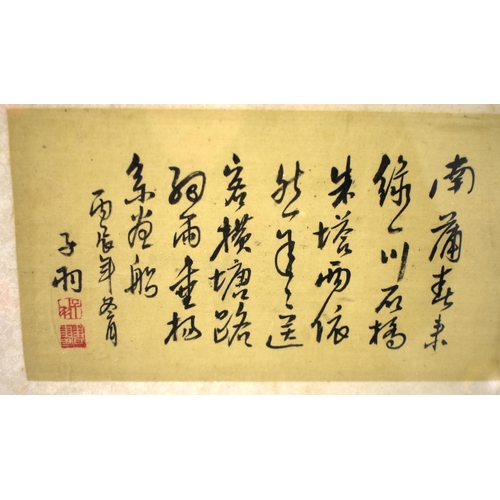 南蒲春来
綠一川石橋
朱塔两依
然年々送
客横塘路
細雨垂杨
系画船
丙辰年冬月
子羽